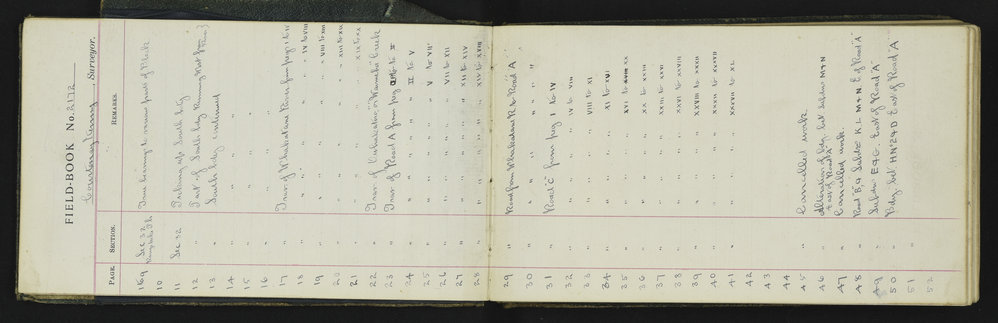 FIELD-BOOK No. 2172
Courtenay Kenny, Surveyor.
PAGE SECTION. REMARKS.
1 to 9 Sec 32 True bearing & main part of Block
10
11 Sec 32 Taking off South bdy
12 " Part of South bdy Running West from
13 " South bdy continued
14 " "
15 " "
16 " "
17 " Trav of Whakatane River from peg I to IV
18 " " " IV to VIII
19 " " " VIII to XIII
20 " " " XIII to XIX
21 " " " XIX to XX
22 " Trav of
23 " Trav of Road A from peg to II
24 " " " II to V
25 " " " V to VII
26 " " " VII to XII
27 " " " XII to XIV
28 " " " XIV to XVIII
29 " Road from Whakatane R to Road A
30 " " " " "
31 " Road "C" from peg I to IV
32 " " " IV to VIII
33 " " " VIII to XI
34 " " " XI to XVI
35 " " " XVI to XX
36 " " " XX to XXIII
37 " " " XXIII to XXVI
38 " " " XXVI to XXVIII
39 " " " XXVIII to XXXII
40 " " " XXXII to XXXVII
41 " " " XXXVII to XL
42
43
44
45 " Cancelled work
46 " Alteration of bdy bet Subdns M & N
East of Road "A"
47 " Cancelled work
48 " Road B, & Subdns K L M & N. E of Road "A"
49 " Subdns E & G. East of Road "A"
50 " Bdy bet H Nº 2 & D East of Road "A"
51 "
52